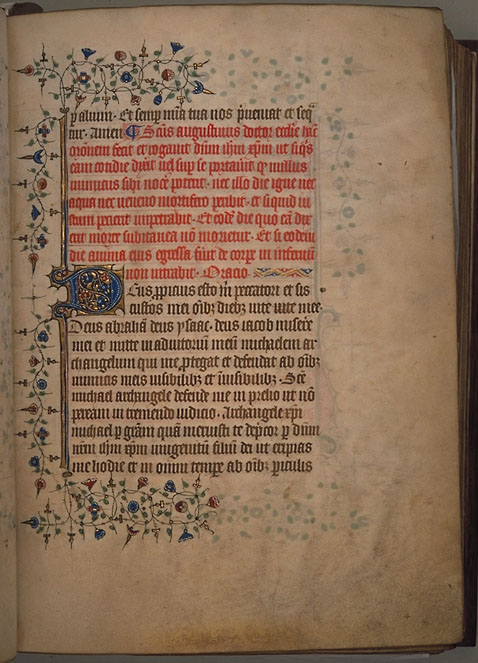 p alium. Et semp mīa tua nos p̄ueniat et seq̄
tur. Amen ¶ Scūs augustinus doctor ecclīe hāc
orōnem fecit et rogauit dn̄m ihm̄ xpm̄ ut siq̄s
eam cotidie dixerit uel sup se portauit q̄ nullus
inimicus sibi nocē poterit. nec illo die igne nec
aqua nec ueneno mortifero peribit. et siquid iu
stum petierit impetrabit. Et eodē die quo eā dix
erit morte subitanea nō morietur. Et si eodem
die anima eius egressa fuit de corpe in infernū
non intrabit. Oracio.
Deus, ppicius esto m̄ peccatori et sis
custos mei oīb; dieb; uite uite mee.
Deus abraham deus ysaac. deus iacob miserē
mei et mitte in adiutorium meū michaelem ar
changelum qui me ptegat et defendat ab oīb;
inimicis meis uisibilib; et īuisibilib;. Scē
michael archangele defende me in prelio ut nō
peream in tremendo iudicio. Archangele xpī
michael p grām quā meruisti te depcor p dīnm
nrm̄ ihm̄ xpm̄ unigenitū filiū dei ut eripias
me hodie et in omni tempe ab oīb; piculis